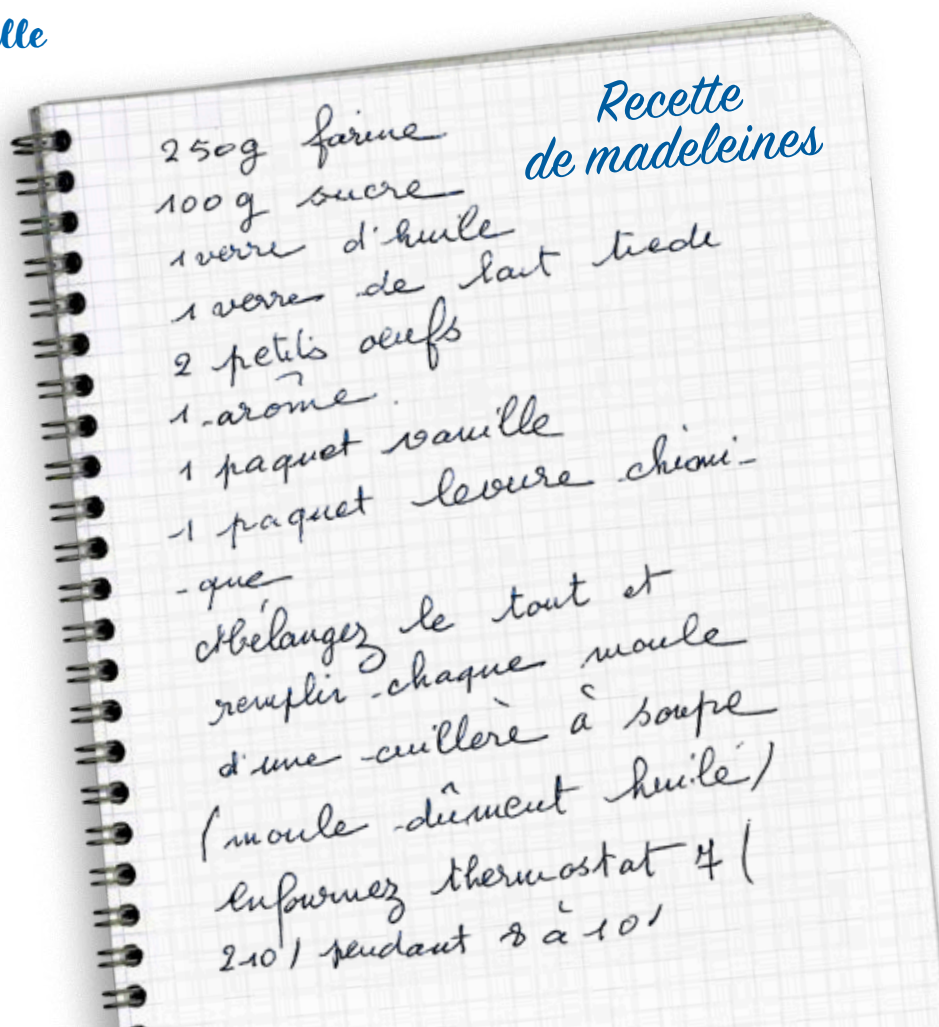 lle
Recette
de madeleines
250g farine
100g sucre
1 verre d'huile
1 verre de lait tiede
2 petits oeufs
1 arôme.
1 paquet vanille
1 paquet levure chimi-
-que
Mélangez le tout et
remplir chaque moule
d'une cuillère à soupe
(moule dûment huilé)
enfournez thermostat 7 (
210) pendant 8 à 10'